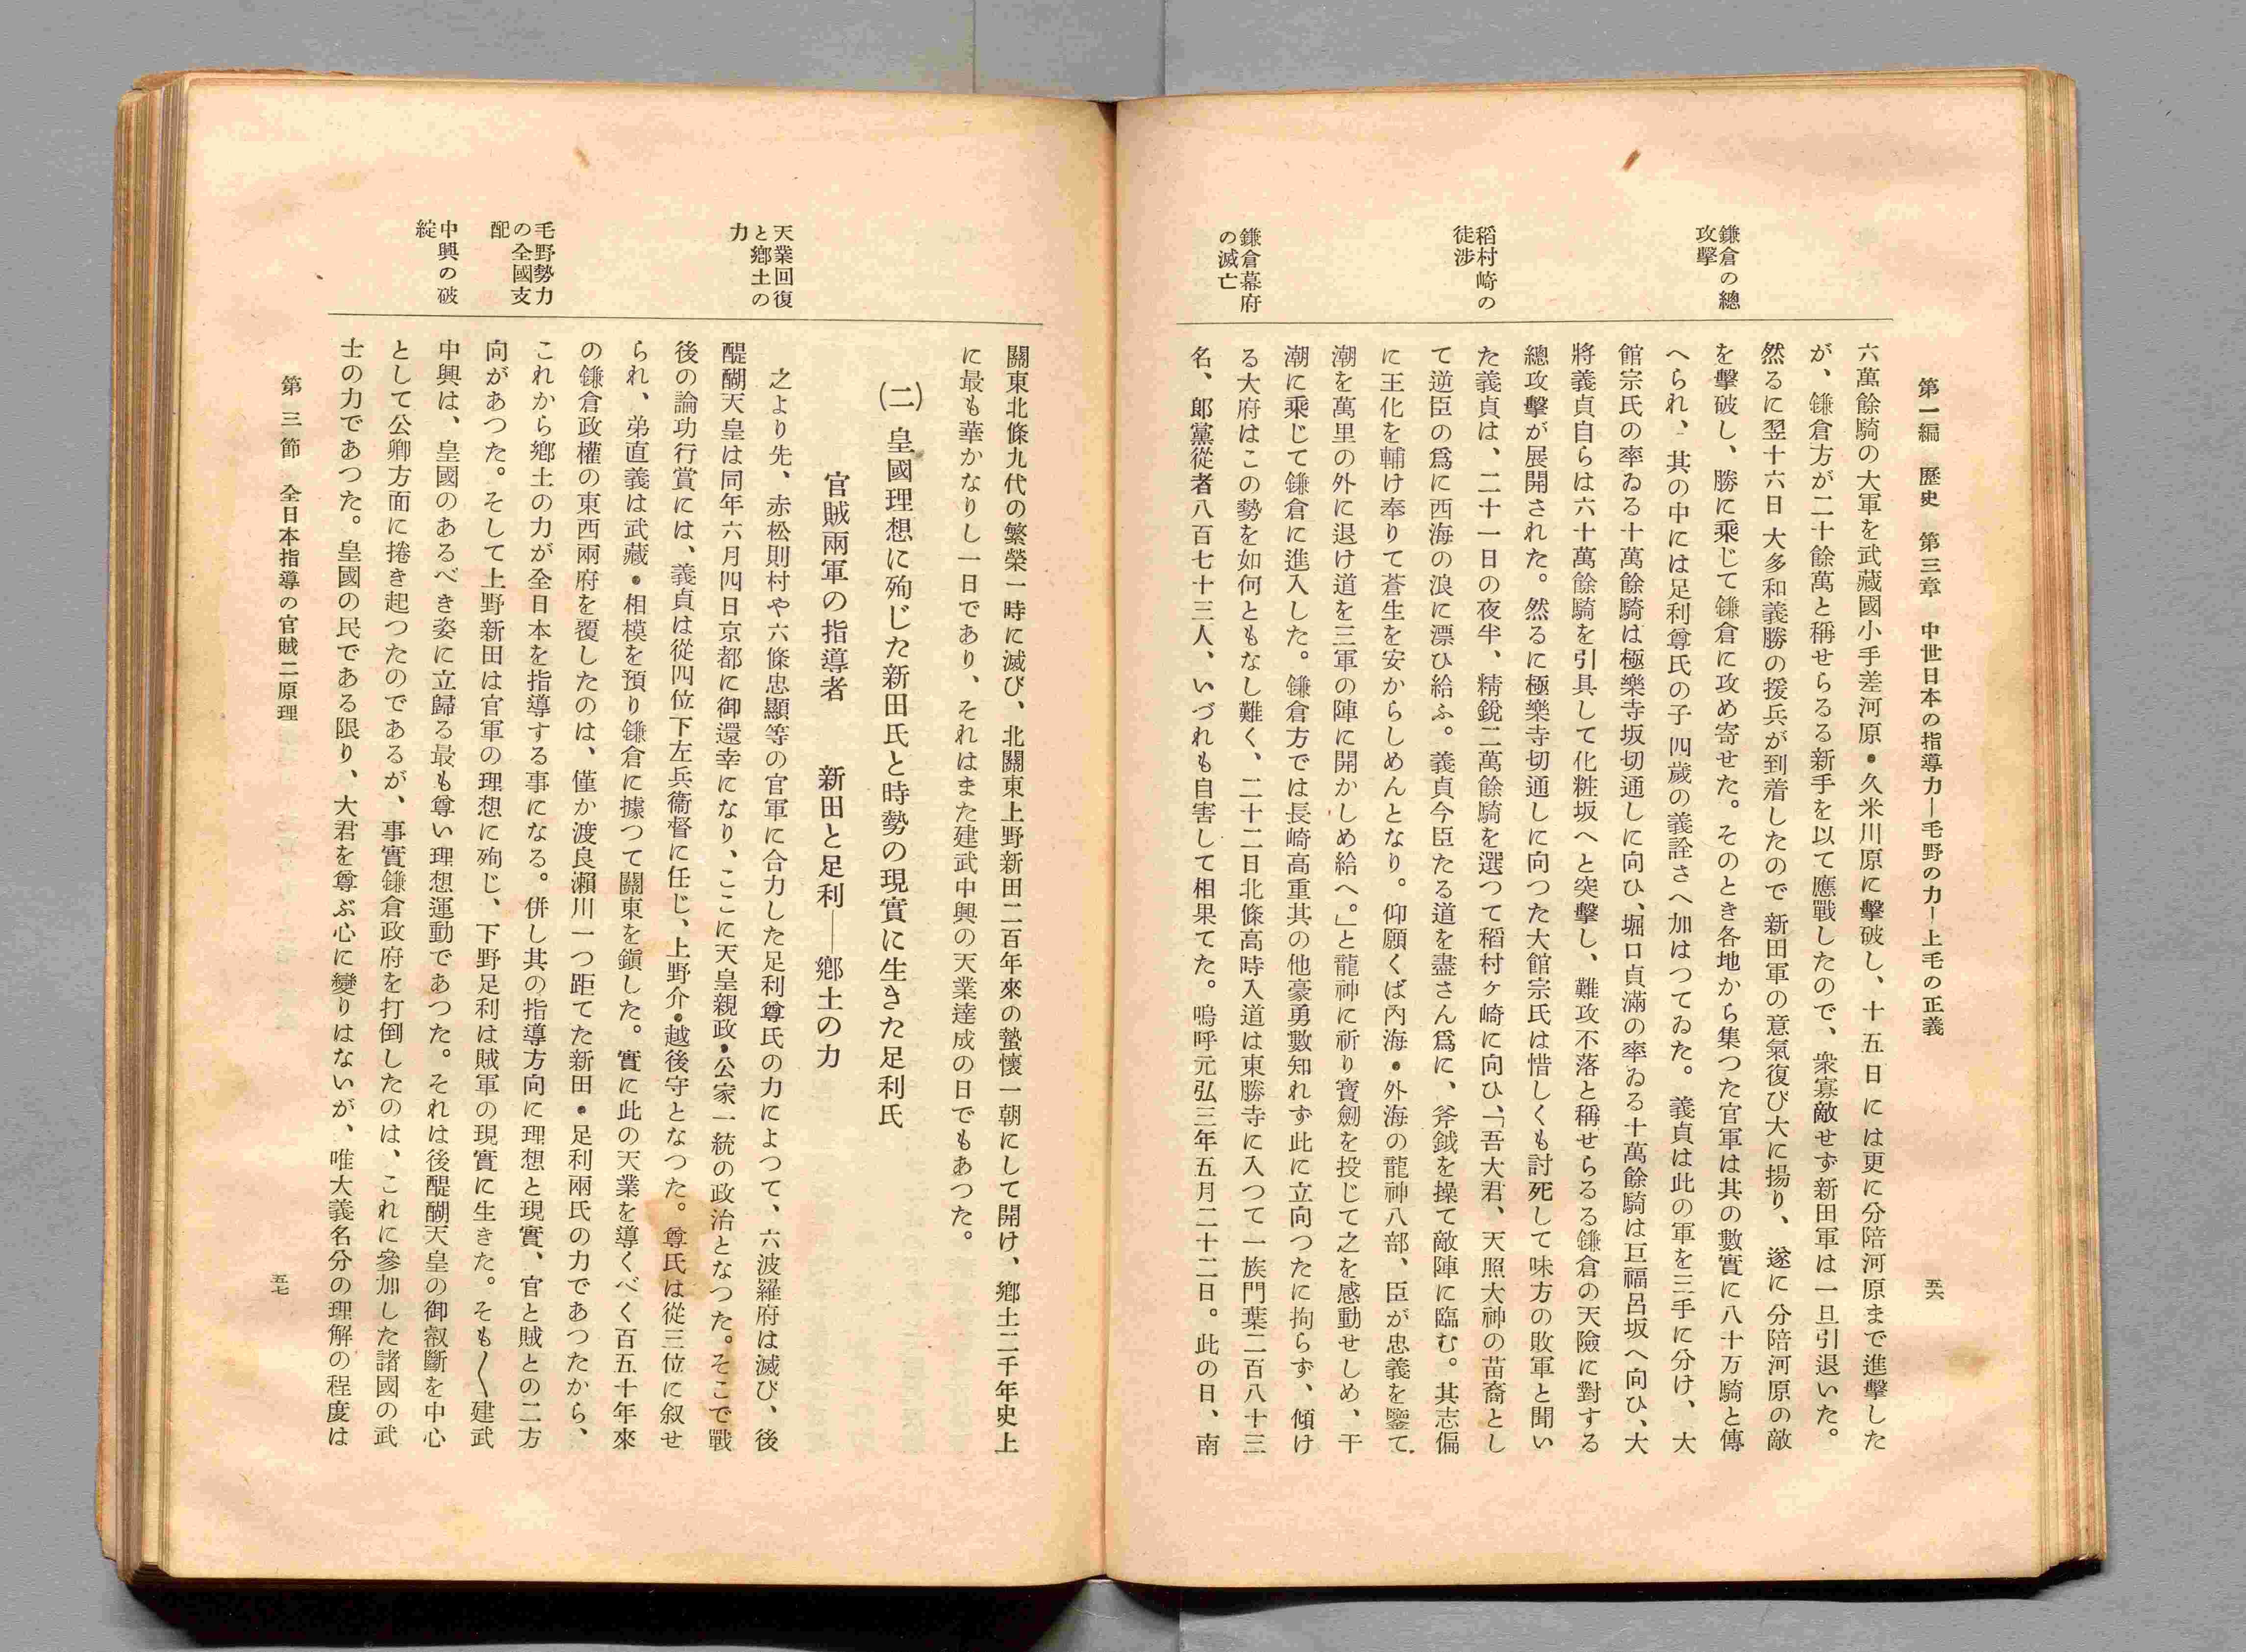 第一編　歷史　第三章　中世日本の指導力―毛野の力―上毛の正義
五六
鎌倉の總
攻擊
稻村崎の
徒涉
鎌倉幕府
の滅亡
六萬餘騎の大軍を武藏國小手差河原・久米川原に擊破し、十五日には更に分陪河原まで進擊した
が、鎌倉方が二十餘萬と稱せらるる新手を以て應戰したので、衆寡敵せず新田軍は一旦引退いた。
然るに翌十六日 大多和義勝の援兵が到着したので 新田軍の意氣復び大に揚り、遂に 分陪河原の敵
を擊破し、勝に乘じて鎌倉に攻め寄せた。そのとき各地から集つた官軍は其の數實に八十万騎と傳
へられ、其の中には足利尊氏の子 四歲の義詮さへ加はつてゐた。 義貞は此の軍を三手に分け、大
館宗氏の率ゐる十萬餘騎は極樂寺坂切通しに向ひ、堀口貞滿の率ゐる十萬餘騎は巨福呂坂へ向ひ、大
將義貞自らは六十萬餘騎を引具して化粧坂へと突擊し、難攻不落と稱せらるる鎌倉の天險に對する
總攻擊が展開された。然るに極樂寺切通しに向つた大館宗氏は惜しくも討死して味方の敗軍と聞い
た義貞は、二十一日の夜半、精銳二萬餘騎を選つて稻村ヶ崎に向ひ、「吾大君、天照大神の苗裔とし
て逆臣の爲に西海の浪に漂ひ給ふ。義貞今臣たる道を盡さん爲に、斧鉞を操て敵陣に臨む。其志偏
に王化を輔け奉りて蒼生を安からしめんとなり。仰願くば內海・外海の龍神八部、臣が忠義を鑒て
潮を萬里の外に退け道を三軍の陣に開かしめ給へ。」と龍神に祈り寶劍を投じて之を感動せしめ、干
潮に乘じて鎌倉に進入した。鎌倉方では長崎高重其の他豪勇數知れず此に立向つたに拘らず、傾け
る大府はこの勢を如何ともなし難く、二十二日北條高時入道は東勝寺に入つて一族門葉二百八十三
名、郞黨從者八百七十三人、いづれも自害して相果てた。嗚呼元弘三年五月二十二日。此の日、南
天業回復
と鄕土の
力
毛野勢力
の全國支
配
中興の破
綻
關東北條九代の繁榮一時に滅び、北關東上野新田二百年來の蟄懷一朝にして開け、鄕土二千年史上
に最も華かなりし一日であり、それはまた建武中興の天業達成の日でもあつた。
(二) 皇國理想に殉じた新田氏と時勢の現實に生きた足利氏
官賊兩軍の指導者　新田と足利――鄕土の力
之より先、赤松則村や六條忠顯等の官軍に合力した足利尊氏の力によつて、六波羅府は滅び、後
醍醐天皇は同年六月四日京都に御還幸になり、ここに天皇親政・公家一統の政治となつた。そこで戰
後の論功行賞には、義貞は從四位下左兵衞督に任じ、上野介・越後守となつた。尊氏は從三位に叙せ
られ、弟直義は武藏・相模を預り鎌倉に據つて關東を鎭した。實に此の天業を導くべく百五十年來
の鎌倉政權の東西兩府を覆したのは、僅か渡良瀨川一つ距てた新田・足利兩氏の力であつたから、
これから鄕土の力が全日本を指導する事になる。併し其の指導方向に理想と現實、官と賊との二方
向があつた。そして上野新田は官軍の理想に殉じ、下野足利は賊軍の現實に生きた。そも〱建武
中興は、皇國のあるべき姿に立歸る最も尊い理想運動であつた。それは後醍醐天皇の御叡斷を中心
として公卿方面に捲き起つたのであるが、事實鎌倉政府を打倒したのは、これに參加した諸國の武
士の力であつた。皇國の民である限り、大君を尊ぶ心に變りはないが、唯大義名分の理解の程度は
第三節　全日本指導の官賊二原理
五七